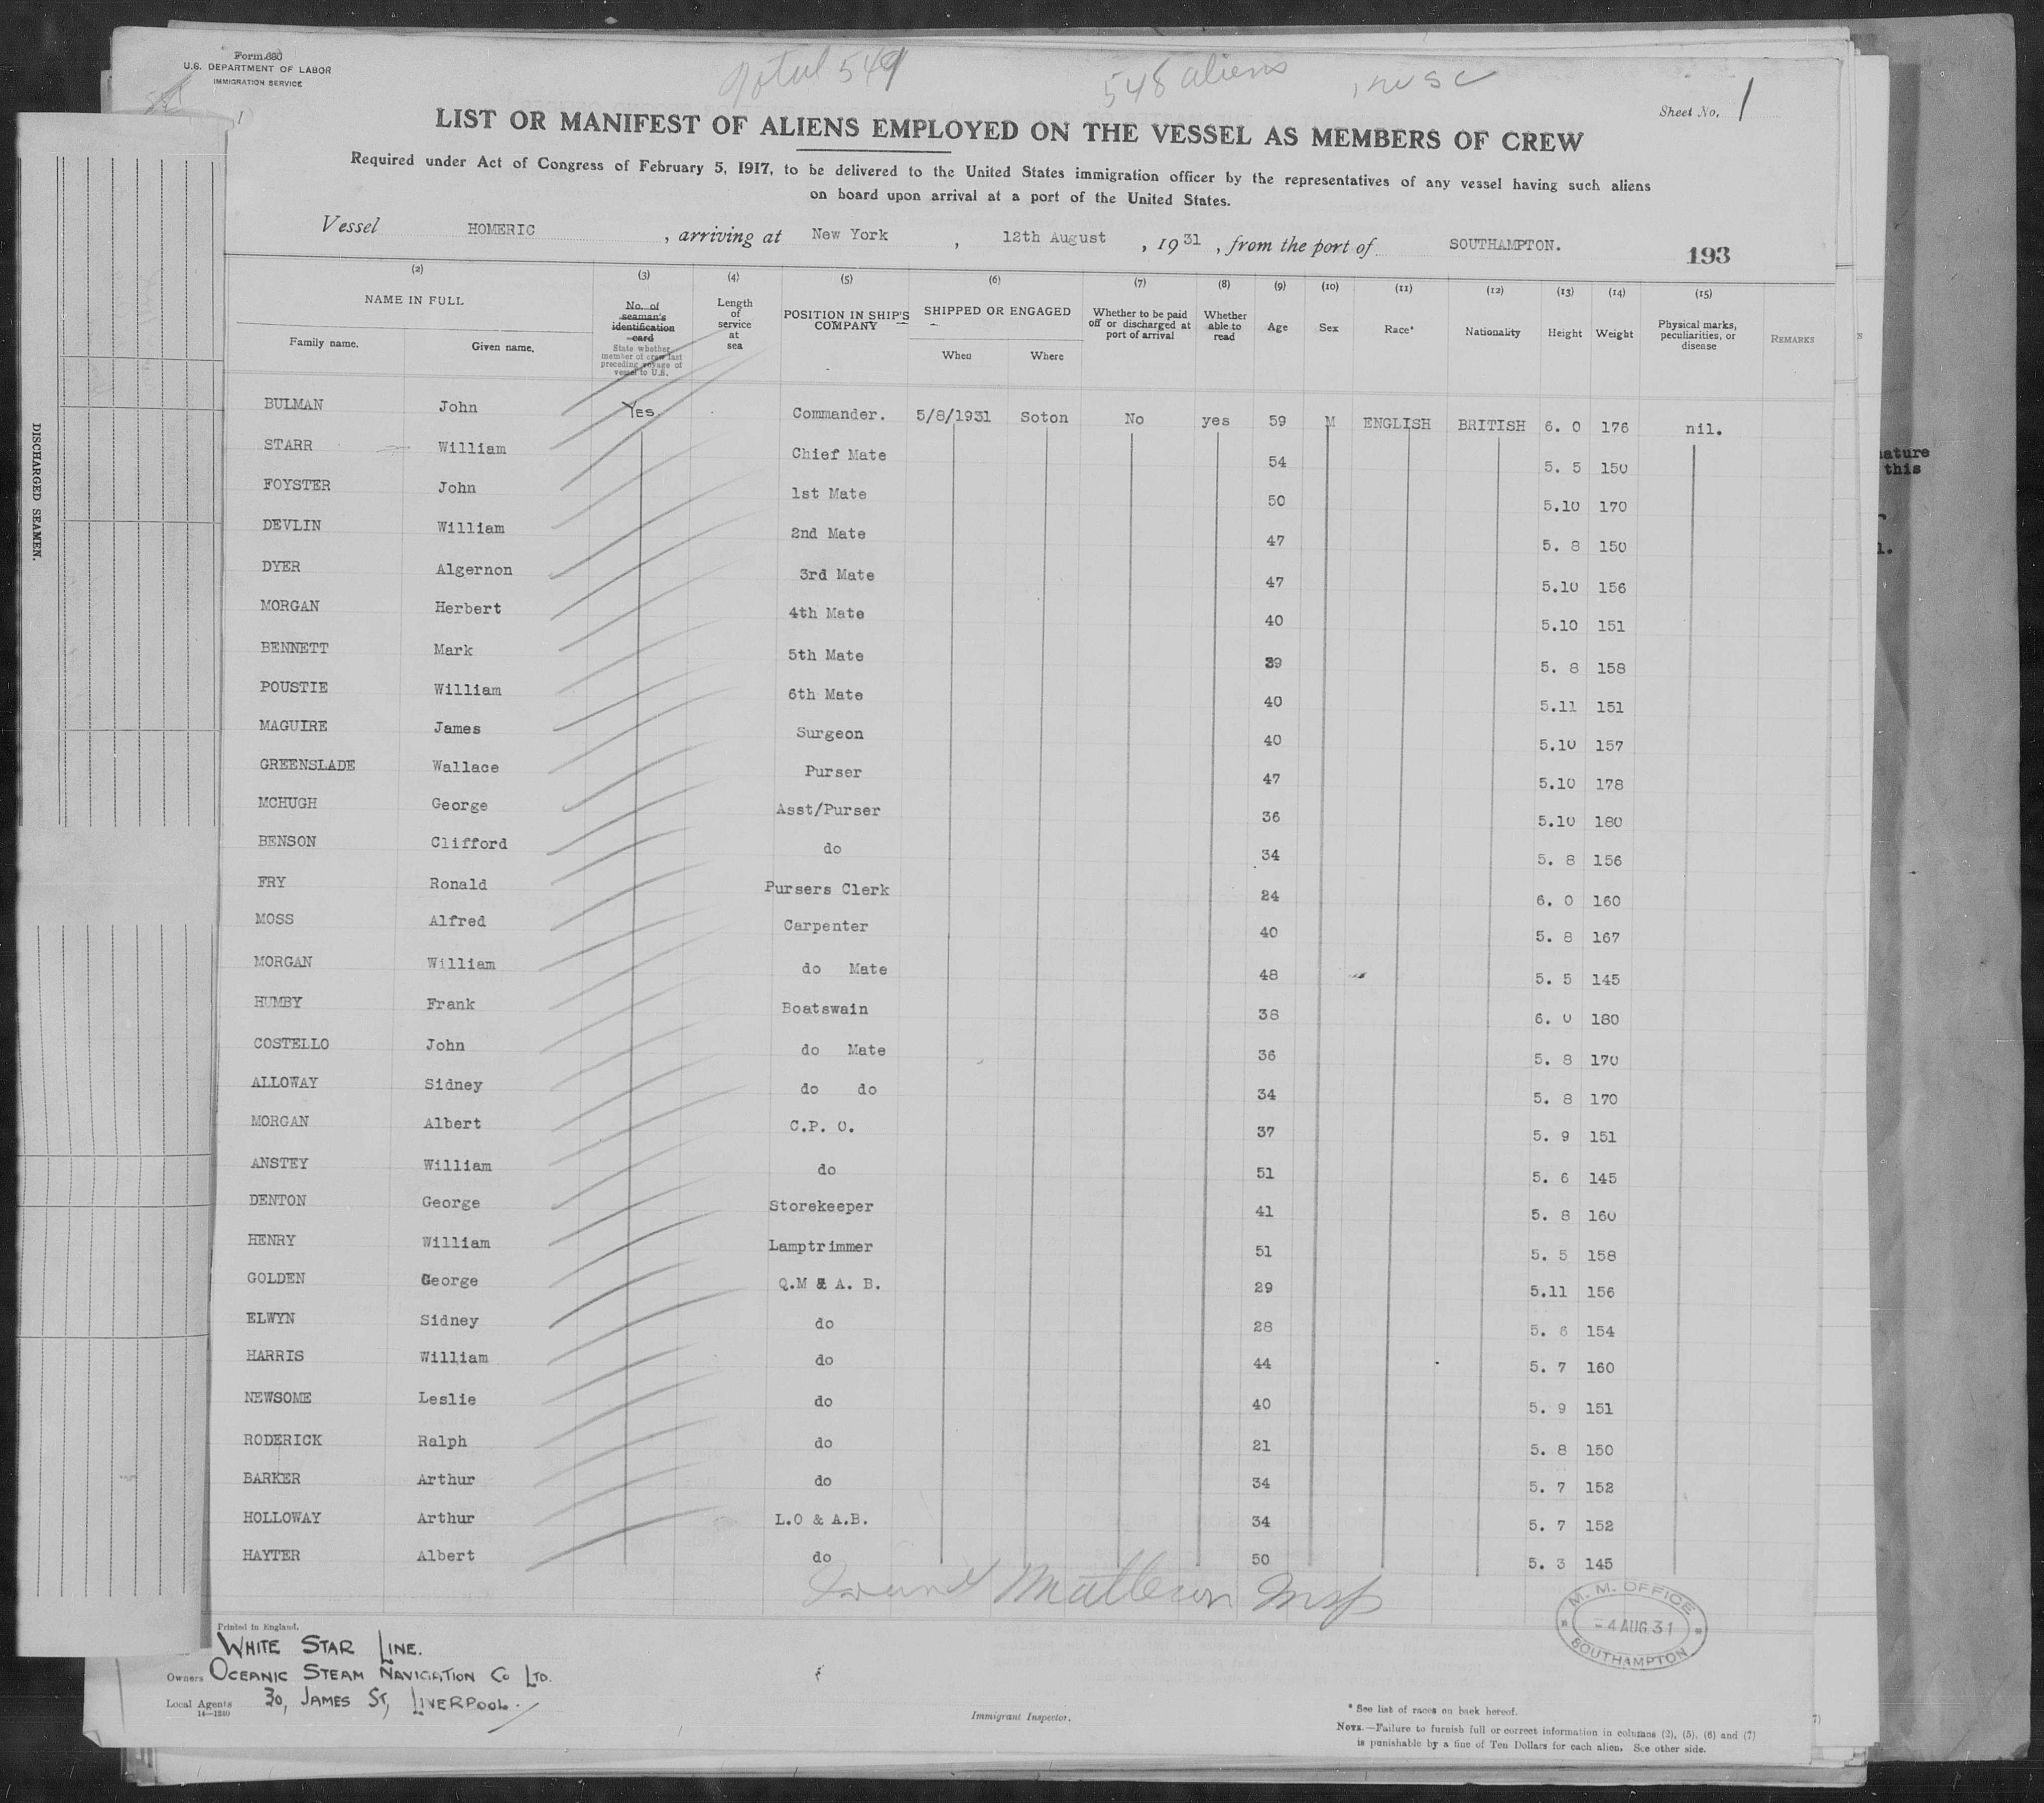 Form 680
U.S. DEPARTMENT OF LABOR
IMMIGRATION SERVICE
Total 549 548 aliens
Sheet No. 1
LIST OR MANIFEST OF ALIENS EMPLOYED ON THE VESSEL AS MEMBERS OF CREW
Required under Act of Congress of February 5, 1917, to be delivered to the United States immigration officer by the representatives of any vessel having such aliens
on board upon arrival at a port of the United States.
Vessel HOMERIC, arriving at New York, 12th August, 1931, from the port of SOUTHAMPTON.
193
(2) (3) (4) (5) (6) (7) (8) (9) (10) (11) (12) (13) (14) (15)
NAME IN FULL
Family name. Given name.
No. of seaman's identification card
State whether member of crew last preceding voyage of vessel to U.S.
Length of service at sea
POSITION IN SHIP'S COMPANY
SHIPPED OR ENGAGED
When Where
Whether to be paid off or discharged at port of arrival
Whether able to read
Age Sex Race* Nationality Height Weight
Physical marks, peculiarities, or disease
REMARKS
BULMAN John Yes. Commander. 5/8/1931 Soton No yes 59 M ENGLISH BRITISH 6. 0 176 nil.
STARR William Chief Mate 54 5. 5 150
FOYSTER John 1st Mate 50 5.10 170
DEVLIN William 2nd Mate 47 5. 8 150
DYER Algernon 3rd Mate 47 5.10 156
MORGAN Herbert 4th Mate 40 5.10 151
BENNETT Mark 5th Mate 39 5. 8 158
POUSTIE William 6th Mate 40 5.11 151
MAGUIRE James Surgeon 40 5.10 157
GREENSLADE Wallace Purser 47 5.10 178
MCHUGH George Asst/Purser 36 5.10 180
BENSON Clifford do 34 5. 8 156
FRY Ronald Pursers Clerk 24 6. 0 160
MOSS Alfred Carpenter 40 5. 8 167
MORGAN William do Mate 48 5. 5 145
HUMBY Frank Boatswain 38 6. 0 180
COSTELLO John do Mate 36 5. 8 170
ALLOWAY Sidney do do 34 5. 8 170
MORGAN Albert C.P. O. 37 5. 9 151
ANSTEY William do 51 5. 6 145
DENTON George Storekeeper 41 5. 8 160
HENRY William Lamptrimmer 51 5. 5 158
GOLDEN George Q.M & A. B. 29 5.11 156
ELWYN Sidney do 28 5. 6 154
HARRIS William do 44 5. 7 160
NEWSOME Leslie do 40 5. 9 151
RODERICK Ralph do 21 5. 8 150
BARKER Arthur do 34 5. 7 152
HOLLOWAY Arthur L.O & A.B. 34 5. 7 152
HAYTER Albert do 50 5. 3 145
Insp
M. M. OFFICE
-4 AUG 31
SOUTHAMPTON
Printed in England.
WHITE STAR LINE.
Owners OCEANIC STEAM NAVIGATION CO LTD.
Local Agents 30, JAMES ST, LIVERPOOL.
14—1240
Immigrant Inspector.
* See list of races on back hereof.
NOTE.—Failure to furnish full or correct information in columns (2), (5), (6) and (7)
is punishable by a fine of Ten Dollars for each alien. See other side.
DISCHARGED SEAMEN.
nature
this